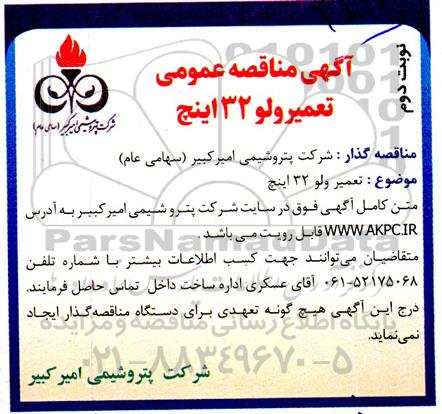 نوبت دوم
آگهی مناقصه عمومی
تعمیر ولو ۳۲ اینچ
شرکت پتروشیمی امیرکبیر (سهامی عام)
مناقصه گذار : شرکت پتروشیمی امیرکبیر (سهامی عام)
موضوع : تعمیر ولو ۳۲ اینچ
متن کامل آگهی فوق در سایت شرکت پتروشیمی امیرکبیر به آدرس
WWW.AKPC.IR قابل رویت می باشد .
متقاضیان می‌توانند جهت کسب اطلاعات بیشتر با شماره تلفن
۰۶۱-۵۲۱۷۵۰۶۸ آقای عسکری اداره ساخت داخل تماس حاصل فرمایند.
درج این آگهی هیچ گونه تعهدی برای دستگاه مناقصه‌گذار ایجاد
نمی‌نماید.
شرکت پتروشیمی امیرکبیر
ParsNamadData
پایگاه اطلاع رسانی مناقصه و مزایده
۰۲۱-۸۸۳۴۹۶۷۰-۵